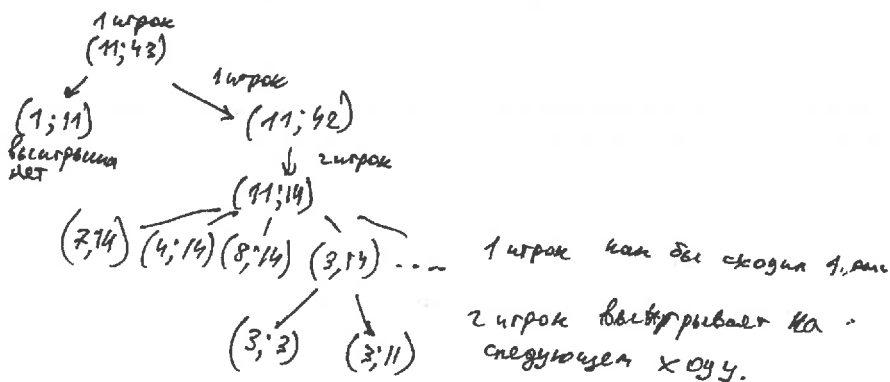 1 игрок
(11;43)
1 игрок
(1;11)
(11;42)
выигрыша
нет
2 игрок
(11;14)
(7,14) (4;14) (8;14) (3,14) ....
1 игрок как бы сходил
2 игрок выигрывает на
следующем ходу.
(3;3) (3;11)